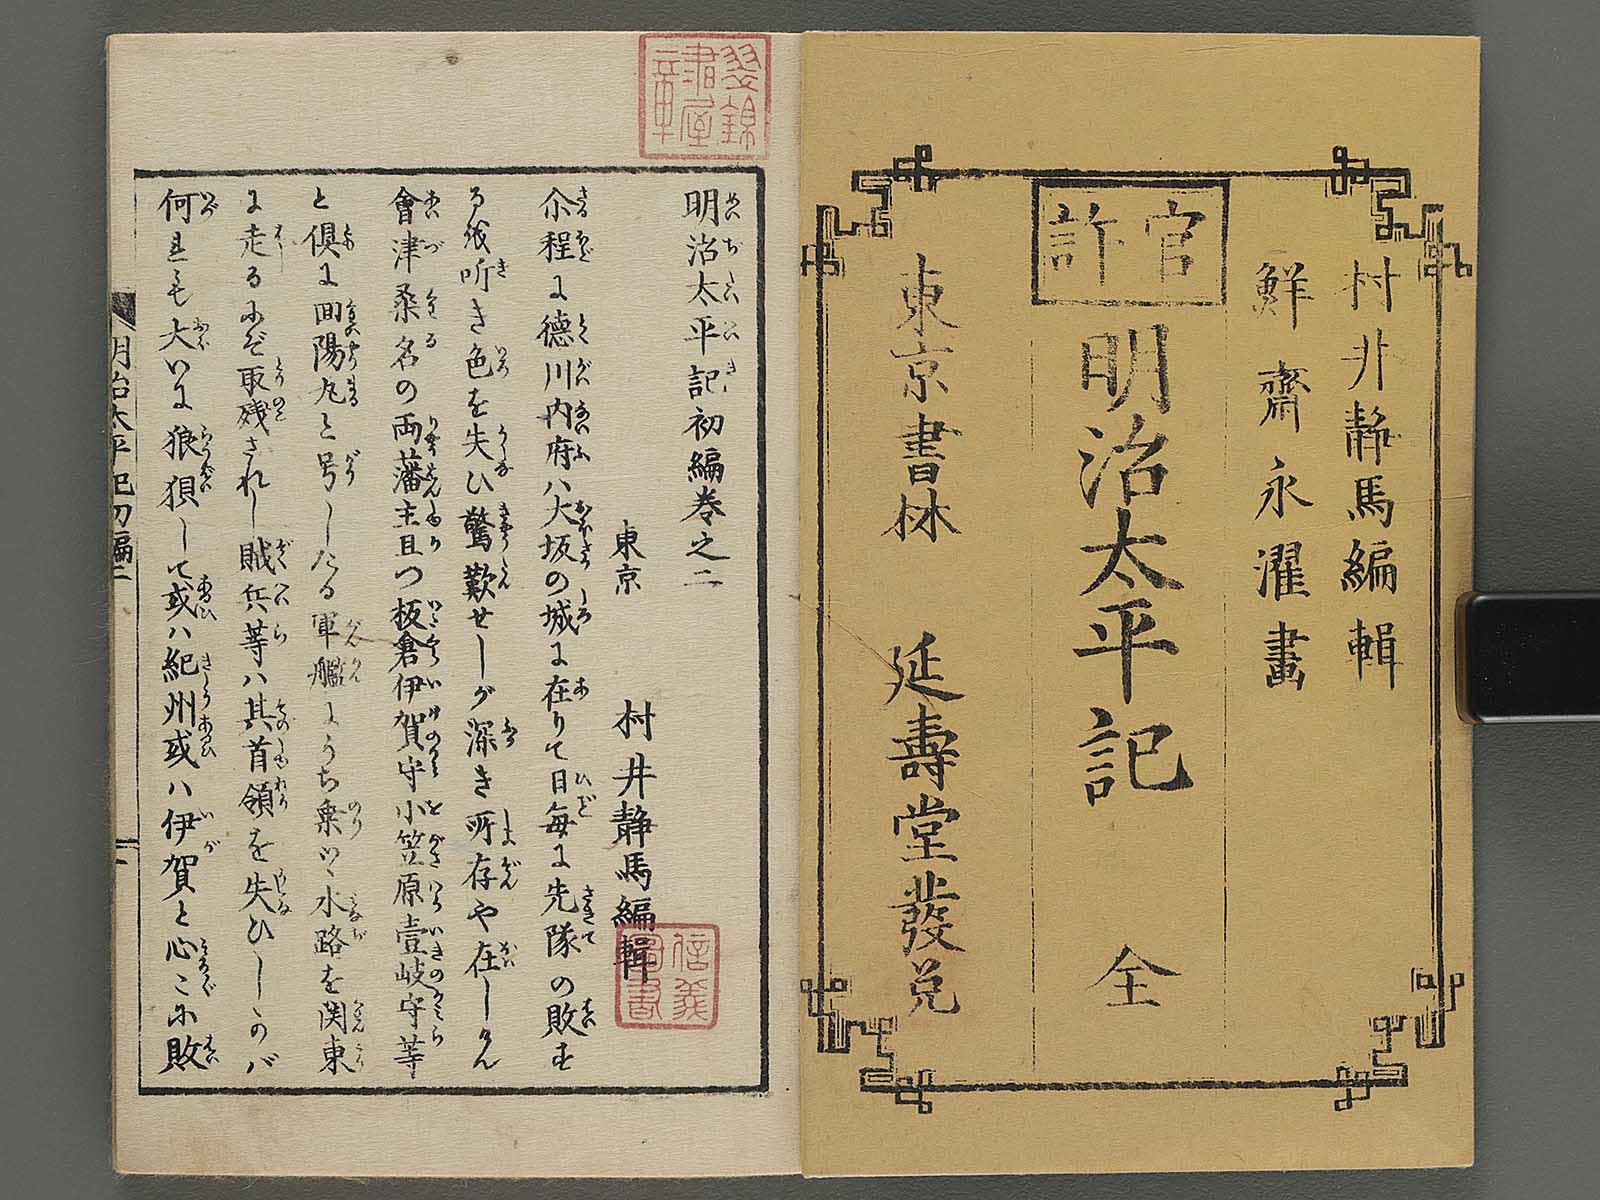 官許
村井静馬編輯
鮮齋永濯畫
明治太平記 全
東京書林 延壽堂發兌
明治太平記初編巻之二
東京 村井静馬編輯
尒程に德川内府ハ大坂の城に在りて日毎に先隊の敗す
るを听き色を失ひ驚歎せしが深き所存や在しけん
會津桑名の両藩主且つ板倉伊賀守小笠原壹岐守等
と倶に回陽丸と号したる軍艦にうち乗りて水路を関東
に走るにぞ取残されし賊兵等ハ其首領を失ひしかバ
何れも大いに狼狽して或ハ紀州或ハ伊賀と心々に敗
明治太平記初編二